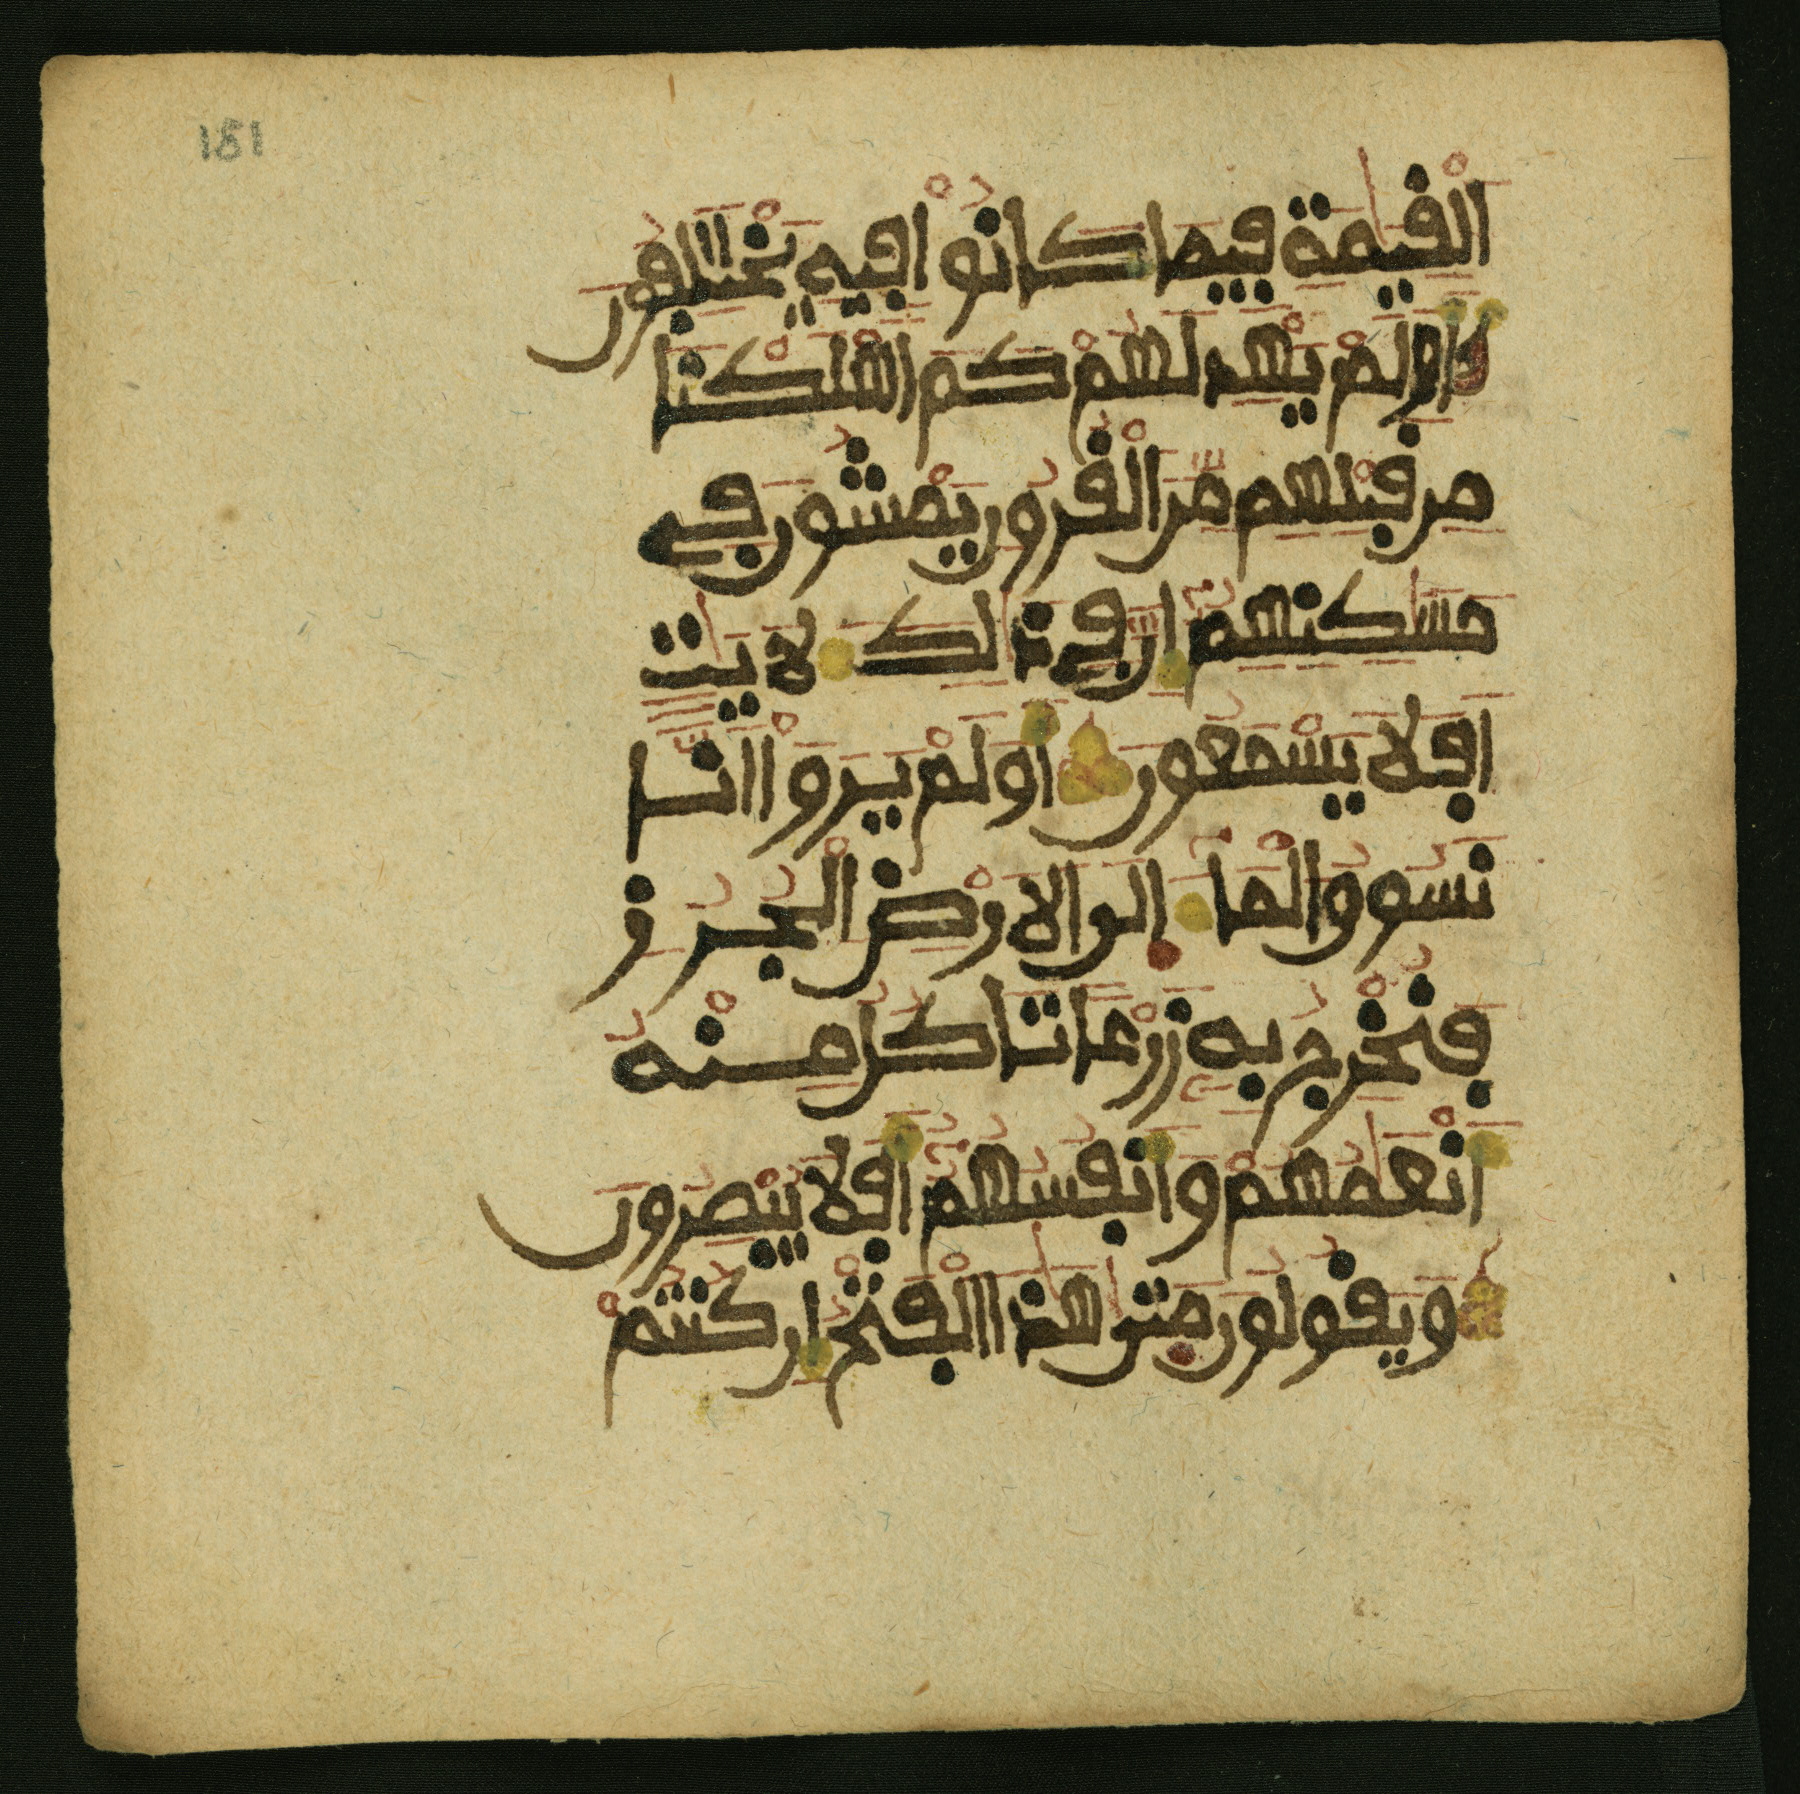 181
الْقِيَٰمَةِ فِيمَا كَانُوا فِيهِ يَخْتَلِفُونَ
اَوَلَمْ يَهْدِ لَهُمْ كَمْ اَهْلَكْنَا
مِن قَبْلِهِم مِّنَ الْقُرُونِ يَمْشُونَ فِي
مَسَٰكِنِهِمُ إِنَّ فِي ذَٰلِكَ لَايَٰتٍ
اَفَلَا يَسْمَعُونَ اَوَلَمْ يَرَوْا اَنَّا
نَسُوقُ الْمَا إِلَى الْارْضِ الْجُرُزِ
فَنُخْرِجُ بِهِ زَرْعًا تَاكُلُ مِنْهُ
اَنْعَٰمُهُمْ وَاَنفُسُهُمُ اَفَلَا يُبْصِرُونَ
وَيَقُولُونَ مَتَىٰ هَٰذَا الْفَتْحُ إِن كُنتُمْ